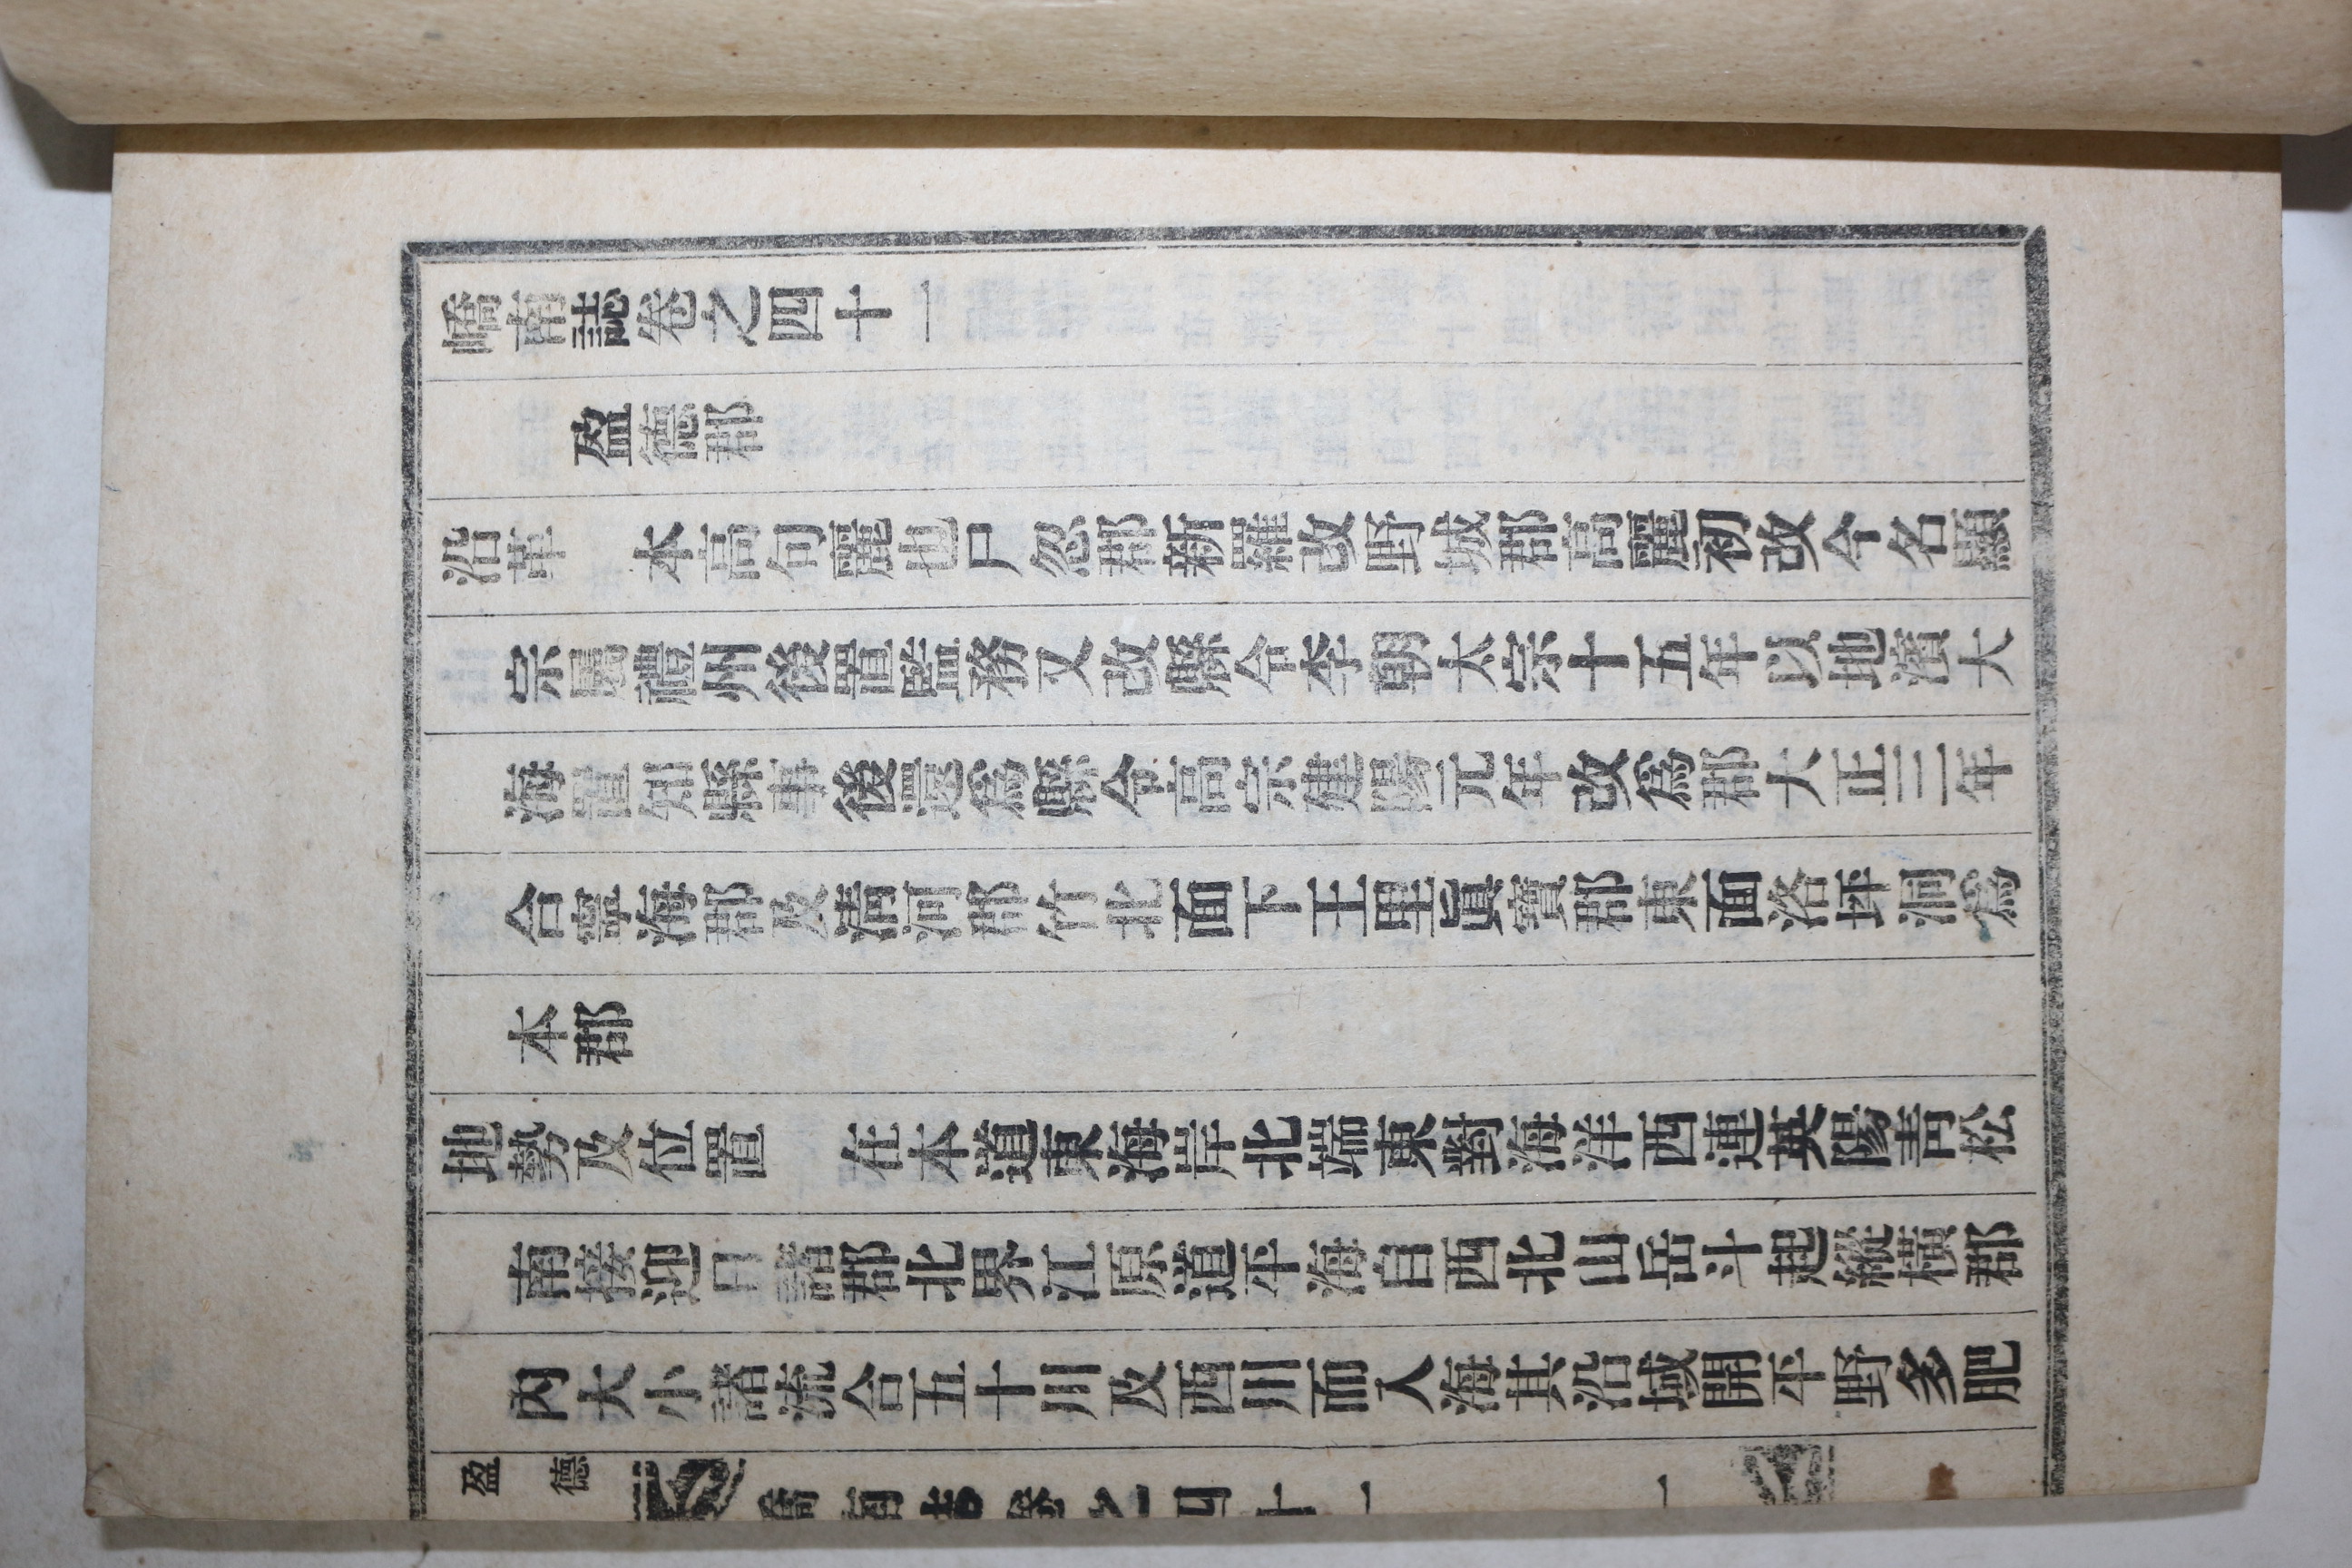 嶠南誌卷之四十一
盈德郡
沿革 本高句麗也尸忽郡新羅改野城郡高麗初改今名顯
宗屬禮州後置監務又改縣令李朝太宗十五年以地濱大
海置知縣事後還爲縣令高宗建陽元年改爲郡大正三年
合寧海郡及淸河郡竹北面下王里眞寶郡東面洛坪洞爲
本郡
地勢及位置 在本道東海岸北端東對海洋西連英陽靑松
南接迎日諸郡北界江原道平海自西北山岳斗起縱橫郡
內大小諸流合五十川及西川而入海其沿域開平野多肥
盈德 嶠南誌卷之四十一 一